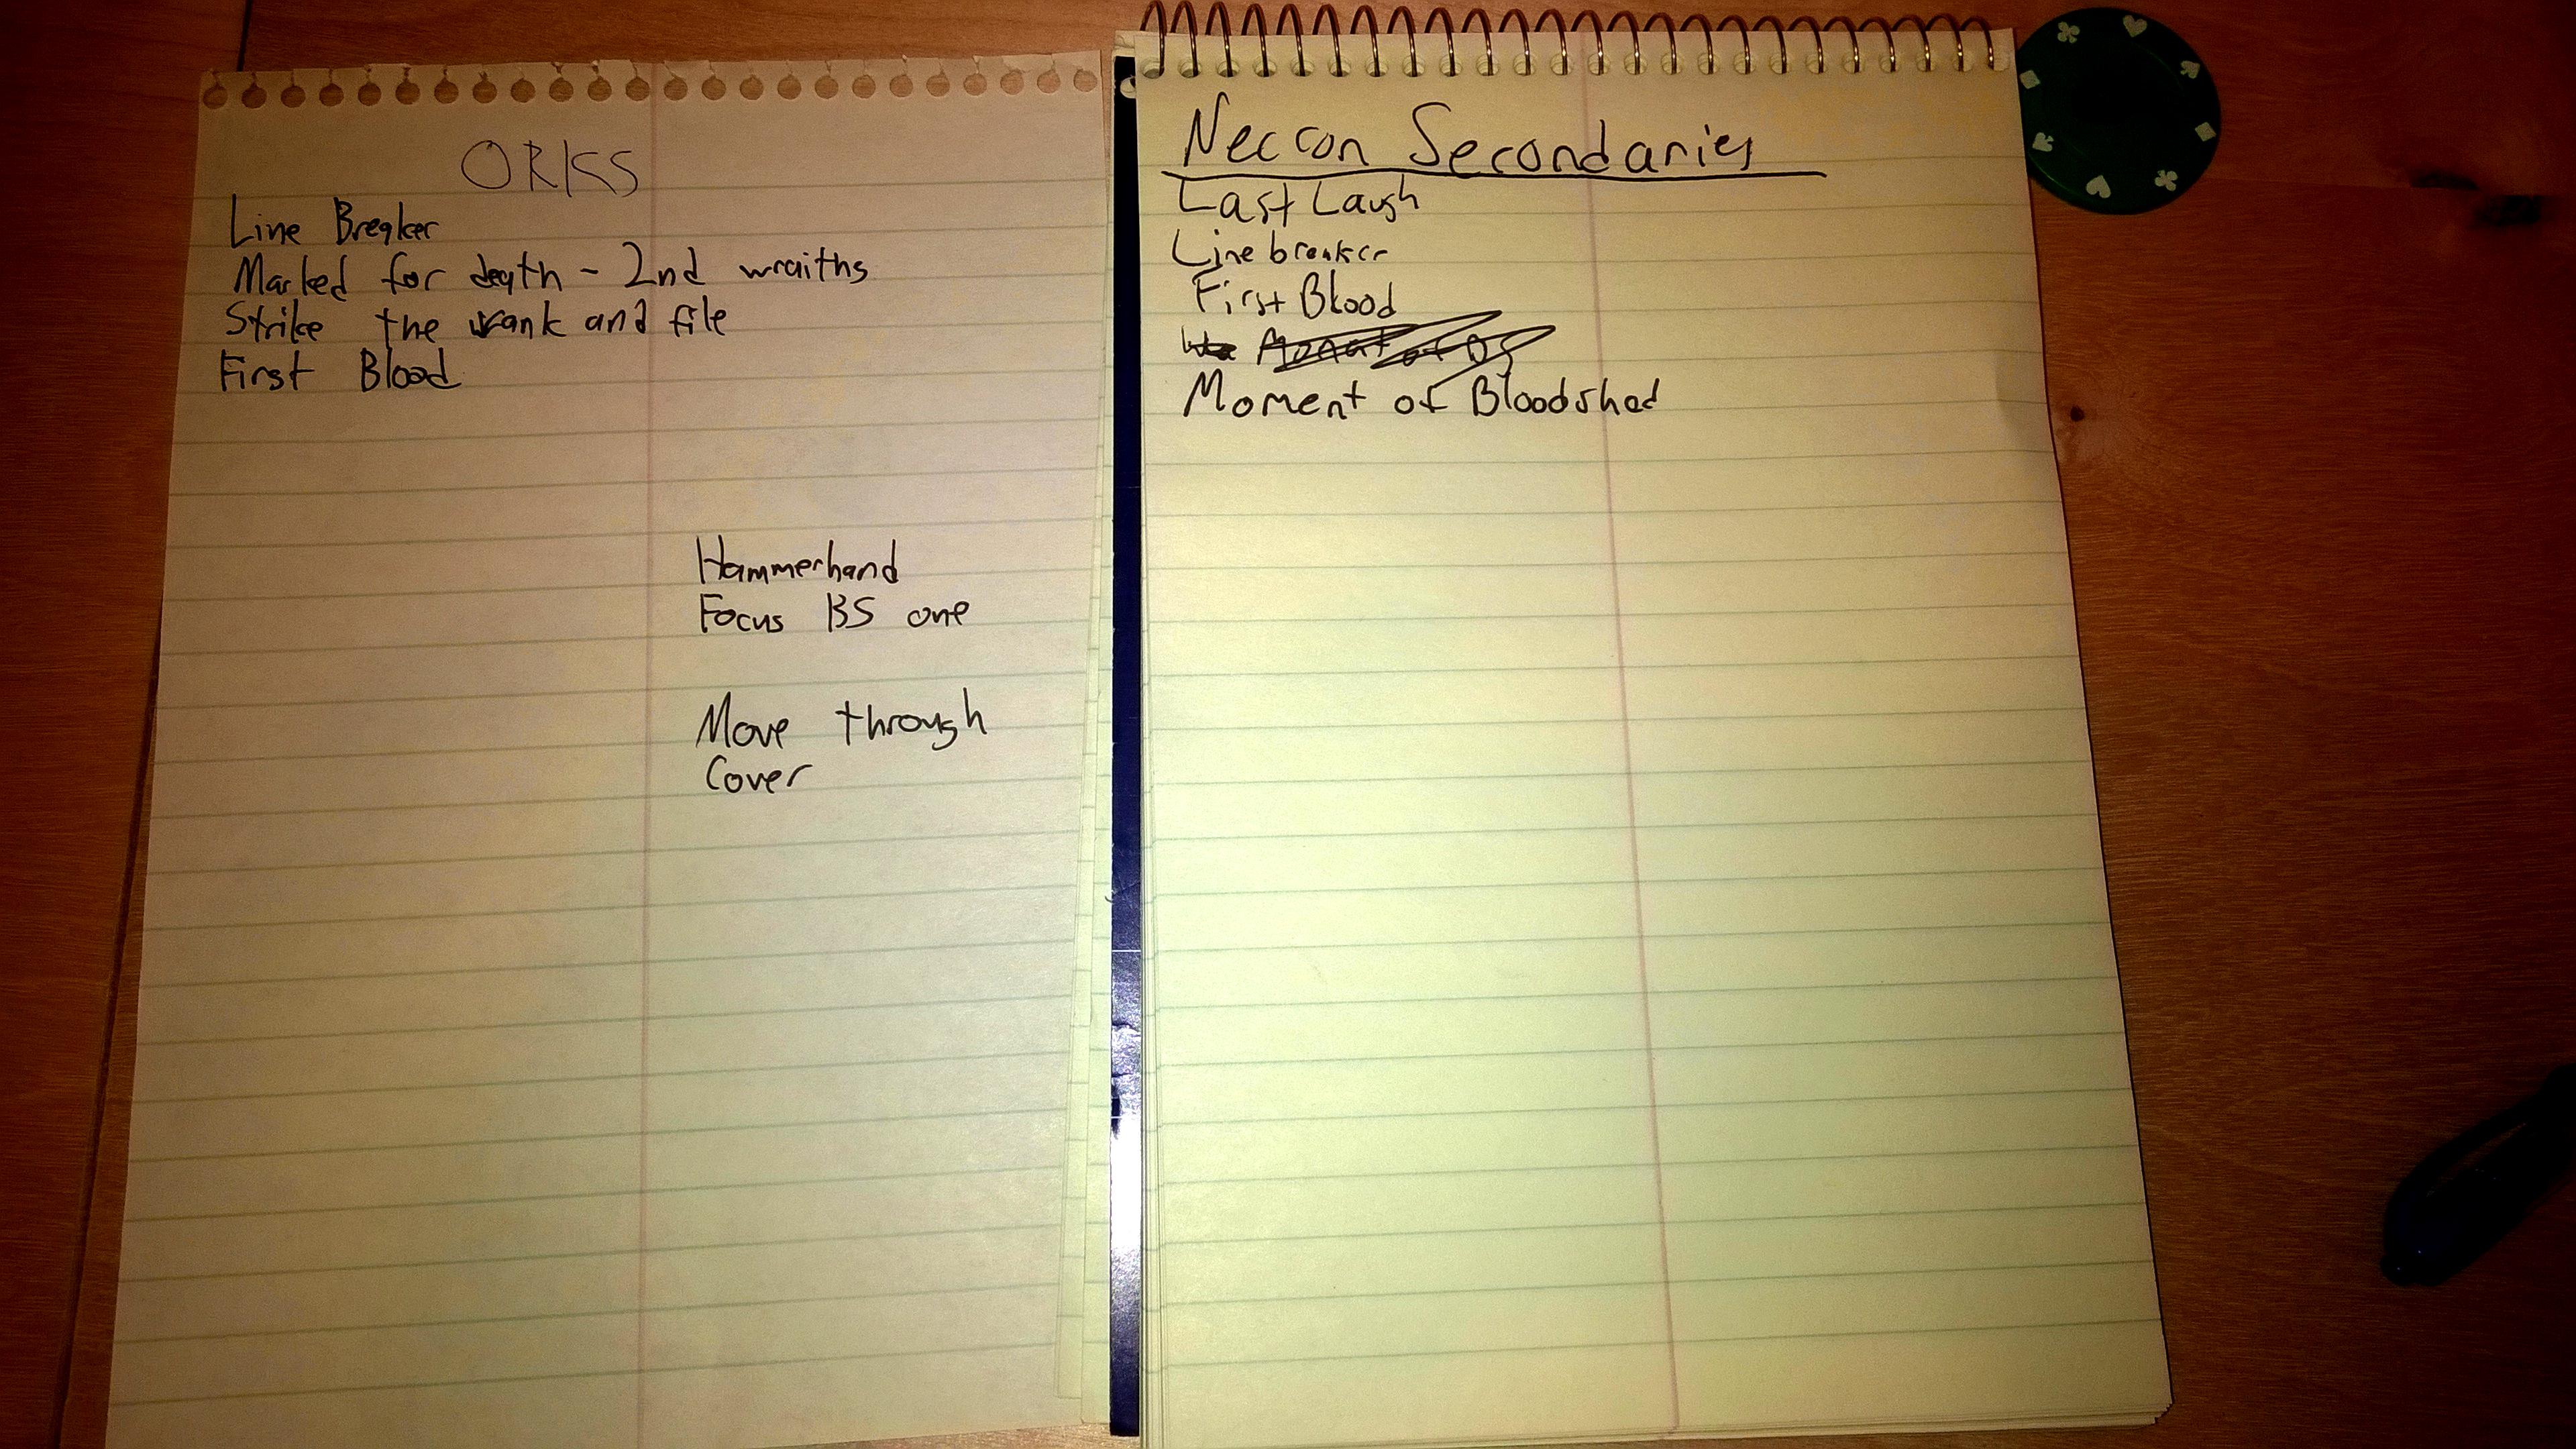 ORKS
Line Breaker
Marked for death - 2nd wraiths
Strike the rank and file
First Blood
Hammerhand
Focus BS one
Move through
Cover
Necron Secondaries
Last Laugh
Line breaker
First Blood
Moment of Bloodshed